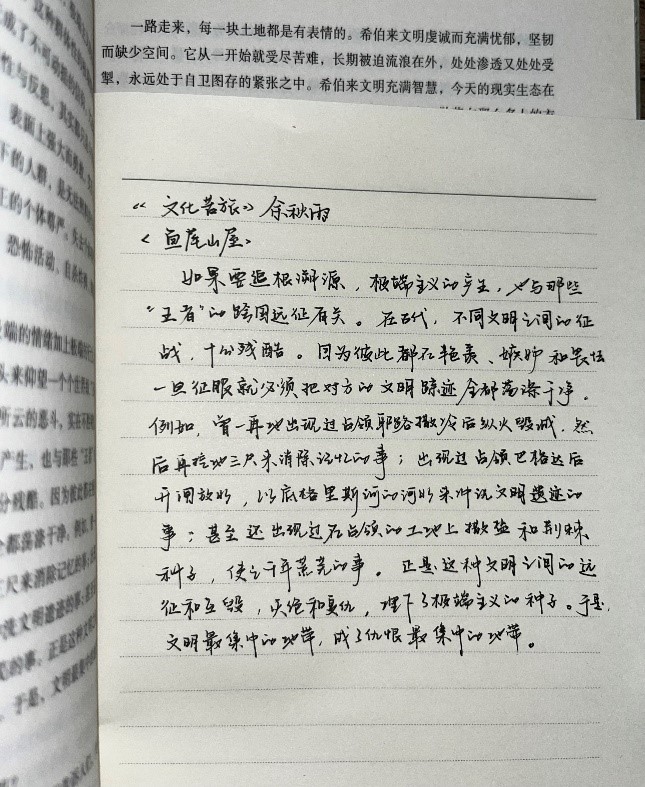 一路走来，每一块土地都是有表情的。希伯来文明虔诚而充满忧郁，坚韧
而缺少空间。它从一开始就受尽苦难，长期被迫流浪在外，处处渗透又处处受
掣，永远处于自卫图存的紧张之中。希伯来文明充满智慧，今天的现实生态在
《文化苦旅》余秋雨
<鱼尾山屋>
如果要追根溯源，极端主义的产生，也与那些
“王者”的跨国远征有关。在古代，不同文明之间的征
战，十分残酷。因为彼此都在艳羡、嫉妒和畏怯
一旦征服就必须把对方的文明踪迹全都荡涤干净。
例如，曾一再地出现过占领耶路撒冷后纵火毁城，然
后再挖地三尺来消除记忆的事；出现过占领巴格达后
开闸放水，以底格里斯河的河水来冲洗文明遗迹的
事；甚至还出现过在占领的土地上撒盐和荆棘
种子，使之千年荒芜的事。正是这种文明之间的远
征和互毁，灭绝和复仇，埋下了极端主义的种子。于是，
文明最集中的地带，成了仇恨最集中的地带。
性与反思，其实
表面上强大
下的人群，是无
上的个体尊严。
恐怖活动，自杀
极端的情绪加上
头来仰望一个个
所云的恶斗，实在
产生，也与那些“王
分残酷。因为彼
全都荡涤干净。例如，
三尺来消除记忆的事
冲洗文明遗迹的事；
芜的事。正是这种文明
。于是，文明最集